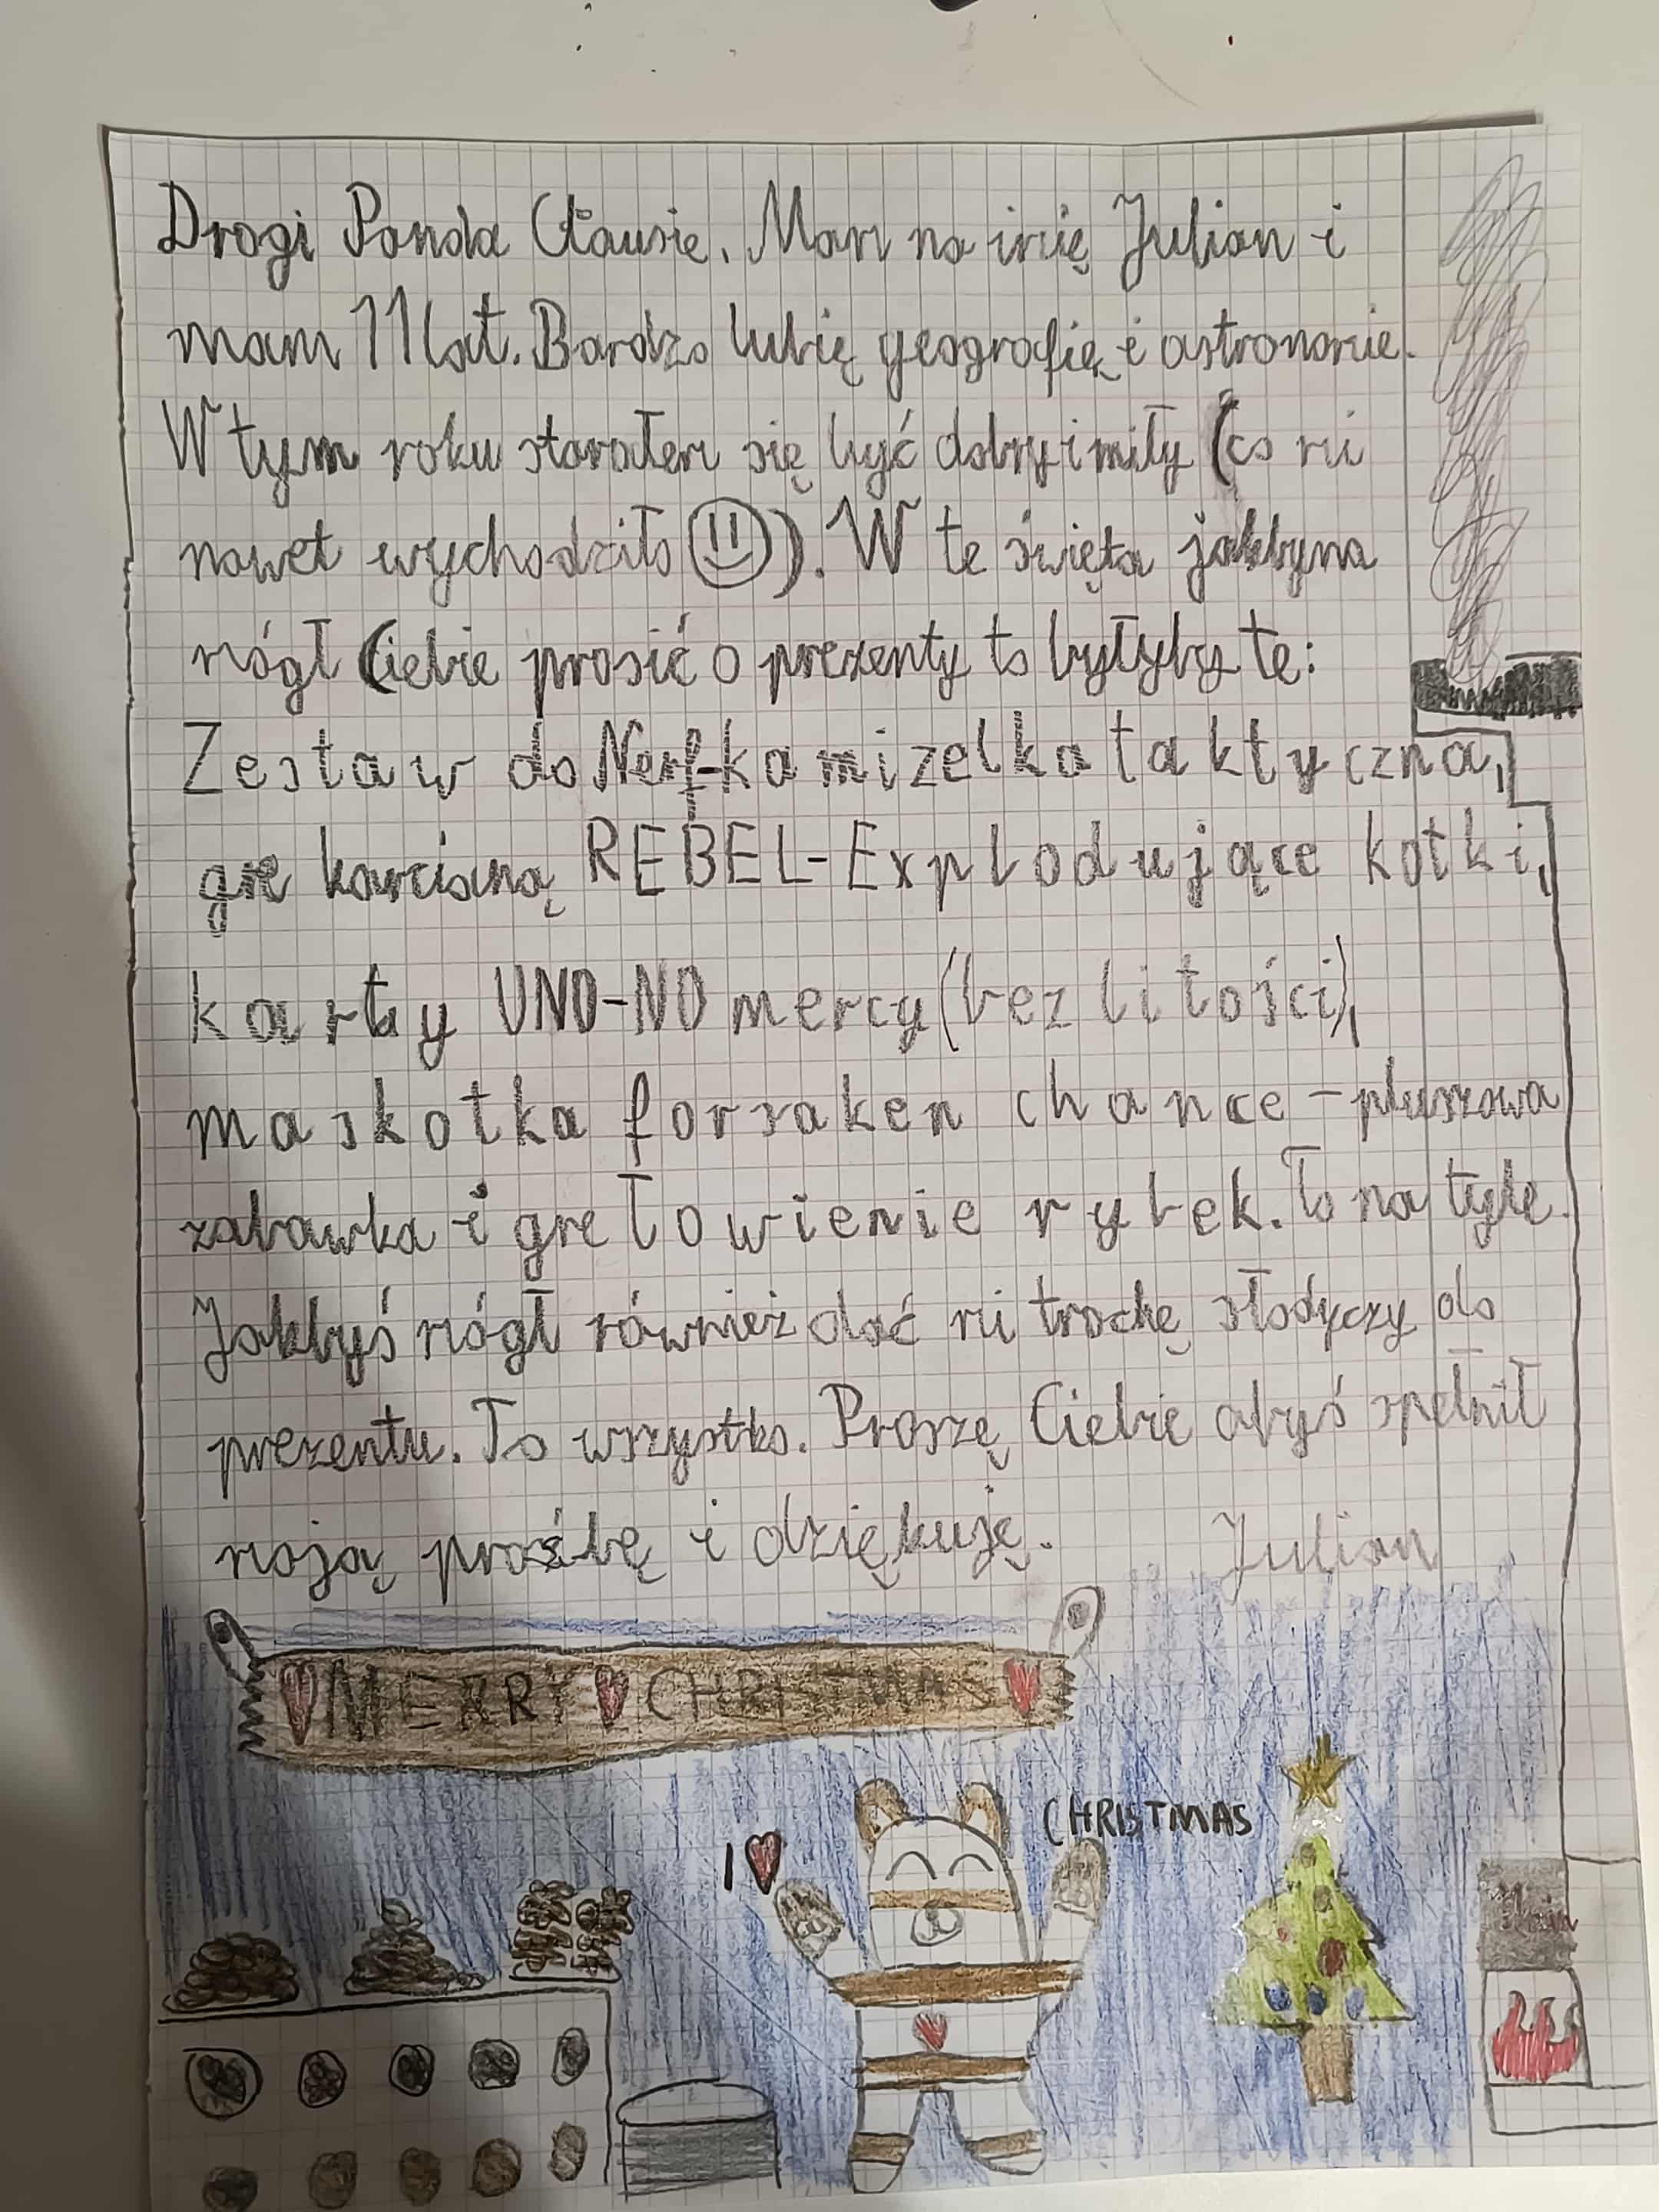 Drogi Panda Clausie. Mam na imię Julian i
mam 11 lat. Bardzo lubię geografię i astronomie.
W tym roku starałem się być dobry i miły (co mi
nawet wychodziło). W te święta jakbym
mógł Ciebie prosić o prezenty to byłyby te:
Zestaw do Nerf-kamizelka taktyczna,
grę karcianą REBEL-Explodujące kotki,
karty UNO-NO mercy (bez litości),
maskotka forsaken chance - pluszowa
zabawka i grę łowienie rybek. To na tyle.
Jakbyś mógł również dać mi trochę słodyczy do
prezentu. To wszystko. Proszę Ciebie abyś spełnił
moją prośbę i dziękuję. Julian
MERRY CHRISTMAS
I CHRISTMAS